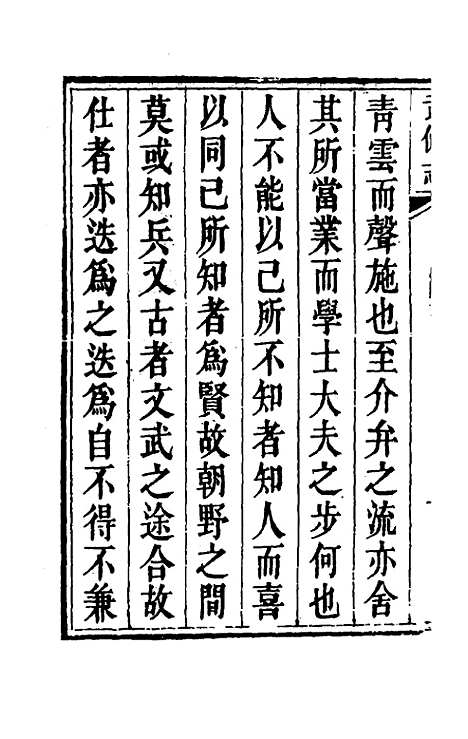 青雲而聲施也至介弁之流亦舍
其所當業而學士大夫之步何也
人不能以己所不知者知人而喜
以同己所知者爲賢故朝野之間
莫或知兵又古者文武之途合故
仕者亦迭爲之迭爲自不得不兼